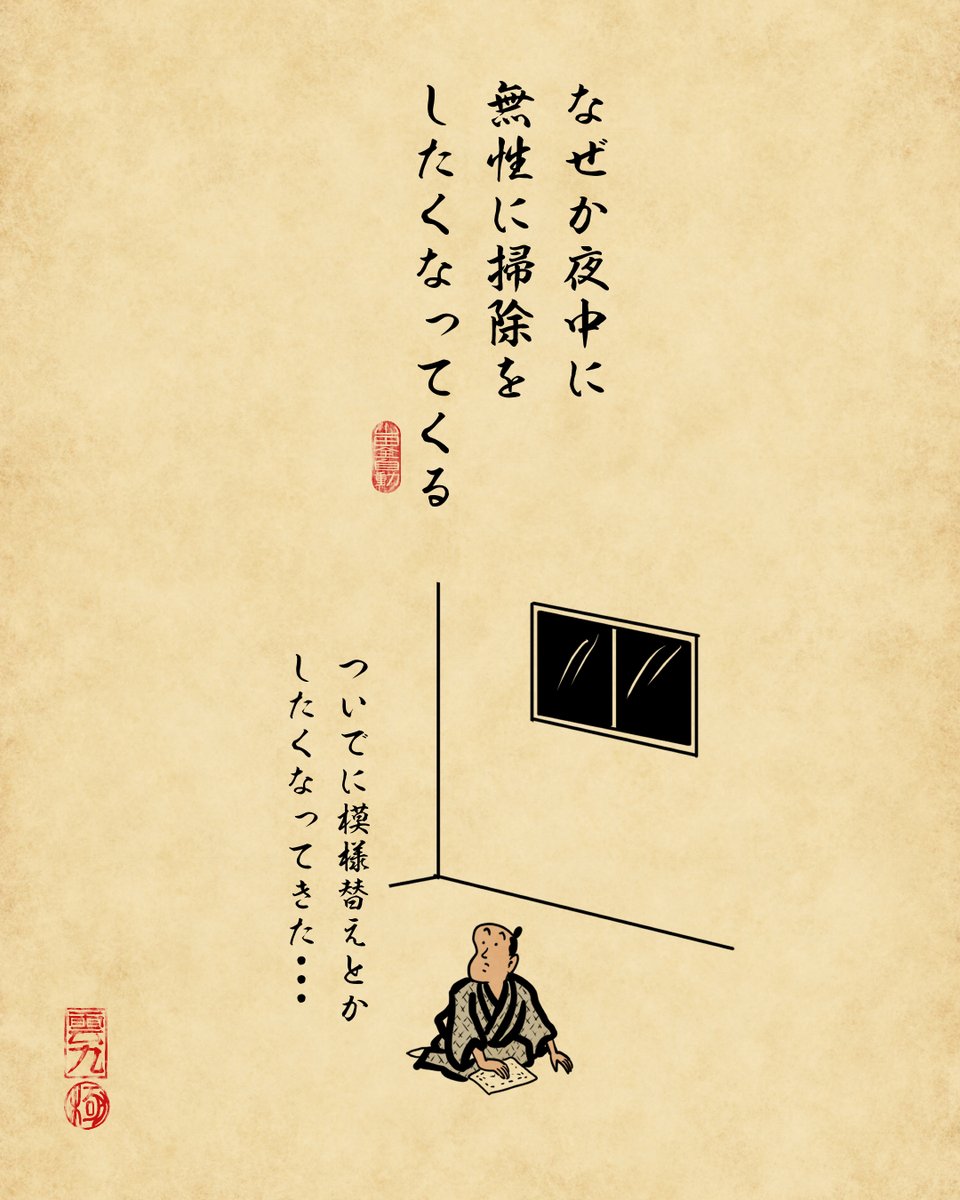 なぜか夜中に
無性に掃除を
したくなってくる
ついでに模様替えとか
したくなってきた・・・
雲九
極